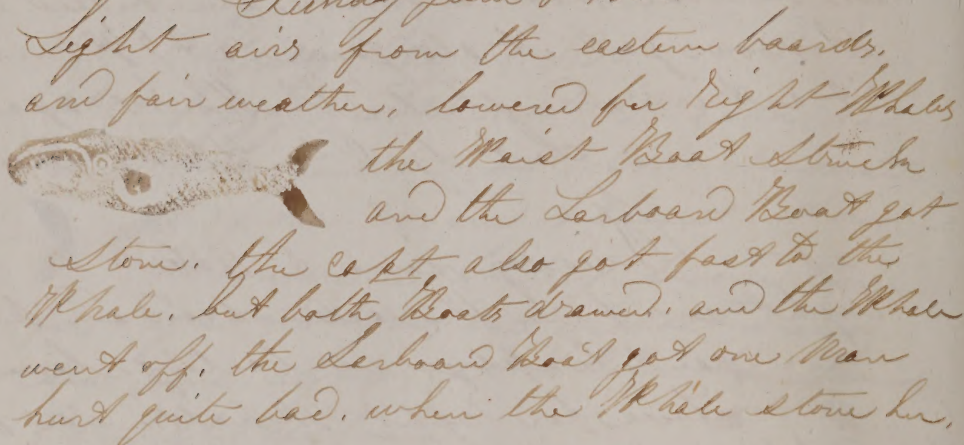 Light airs from the eastern boards.
and fair weather, lowered for Right Whales
the Waist Boat Struck
and the Larboard Boat got
stove. the capt, also got fast to the
Whale. but both Boats drawed. and the Whale
went off. the Larboard Boat got one Man
hurt quite bad. when the Whale stove her.